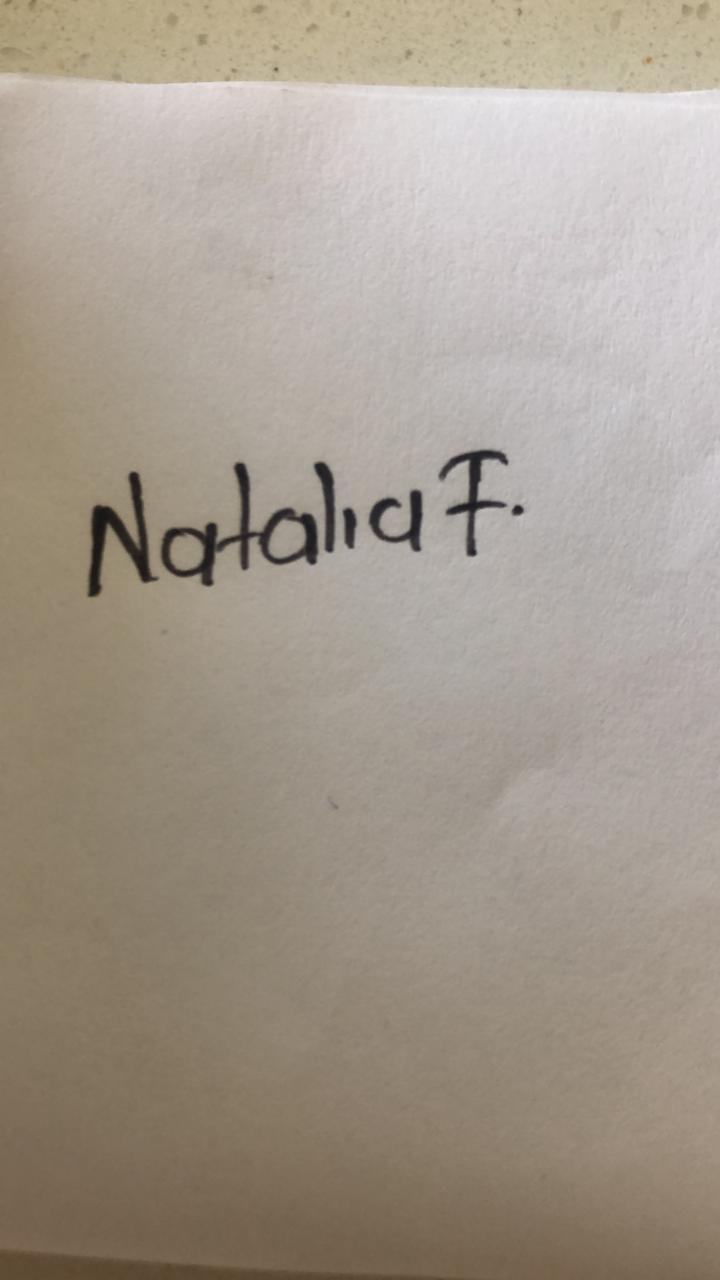 Natalia F.